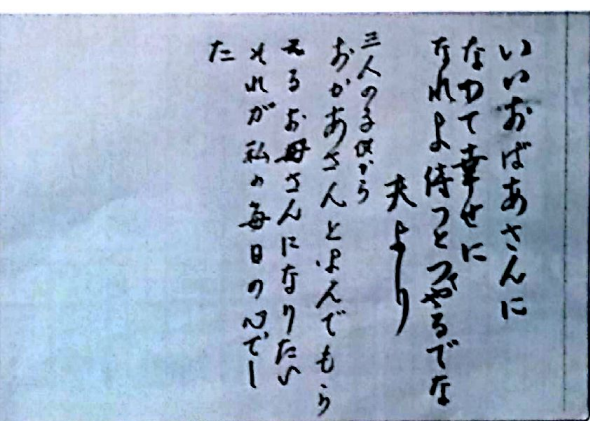 いいおばあさんに
なって幸せに
なれよ待つとつやるでな
夫より
三人の子供から
おかあさんとよんでもら
えるお母さんになりたい
それが私の毎日の心でし
た